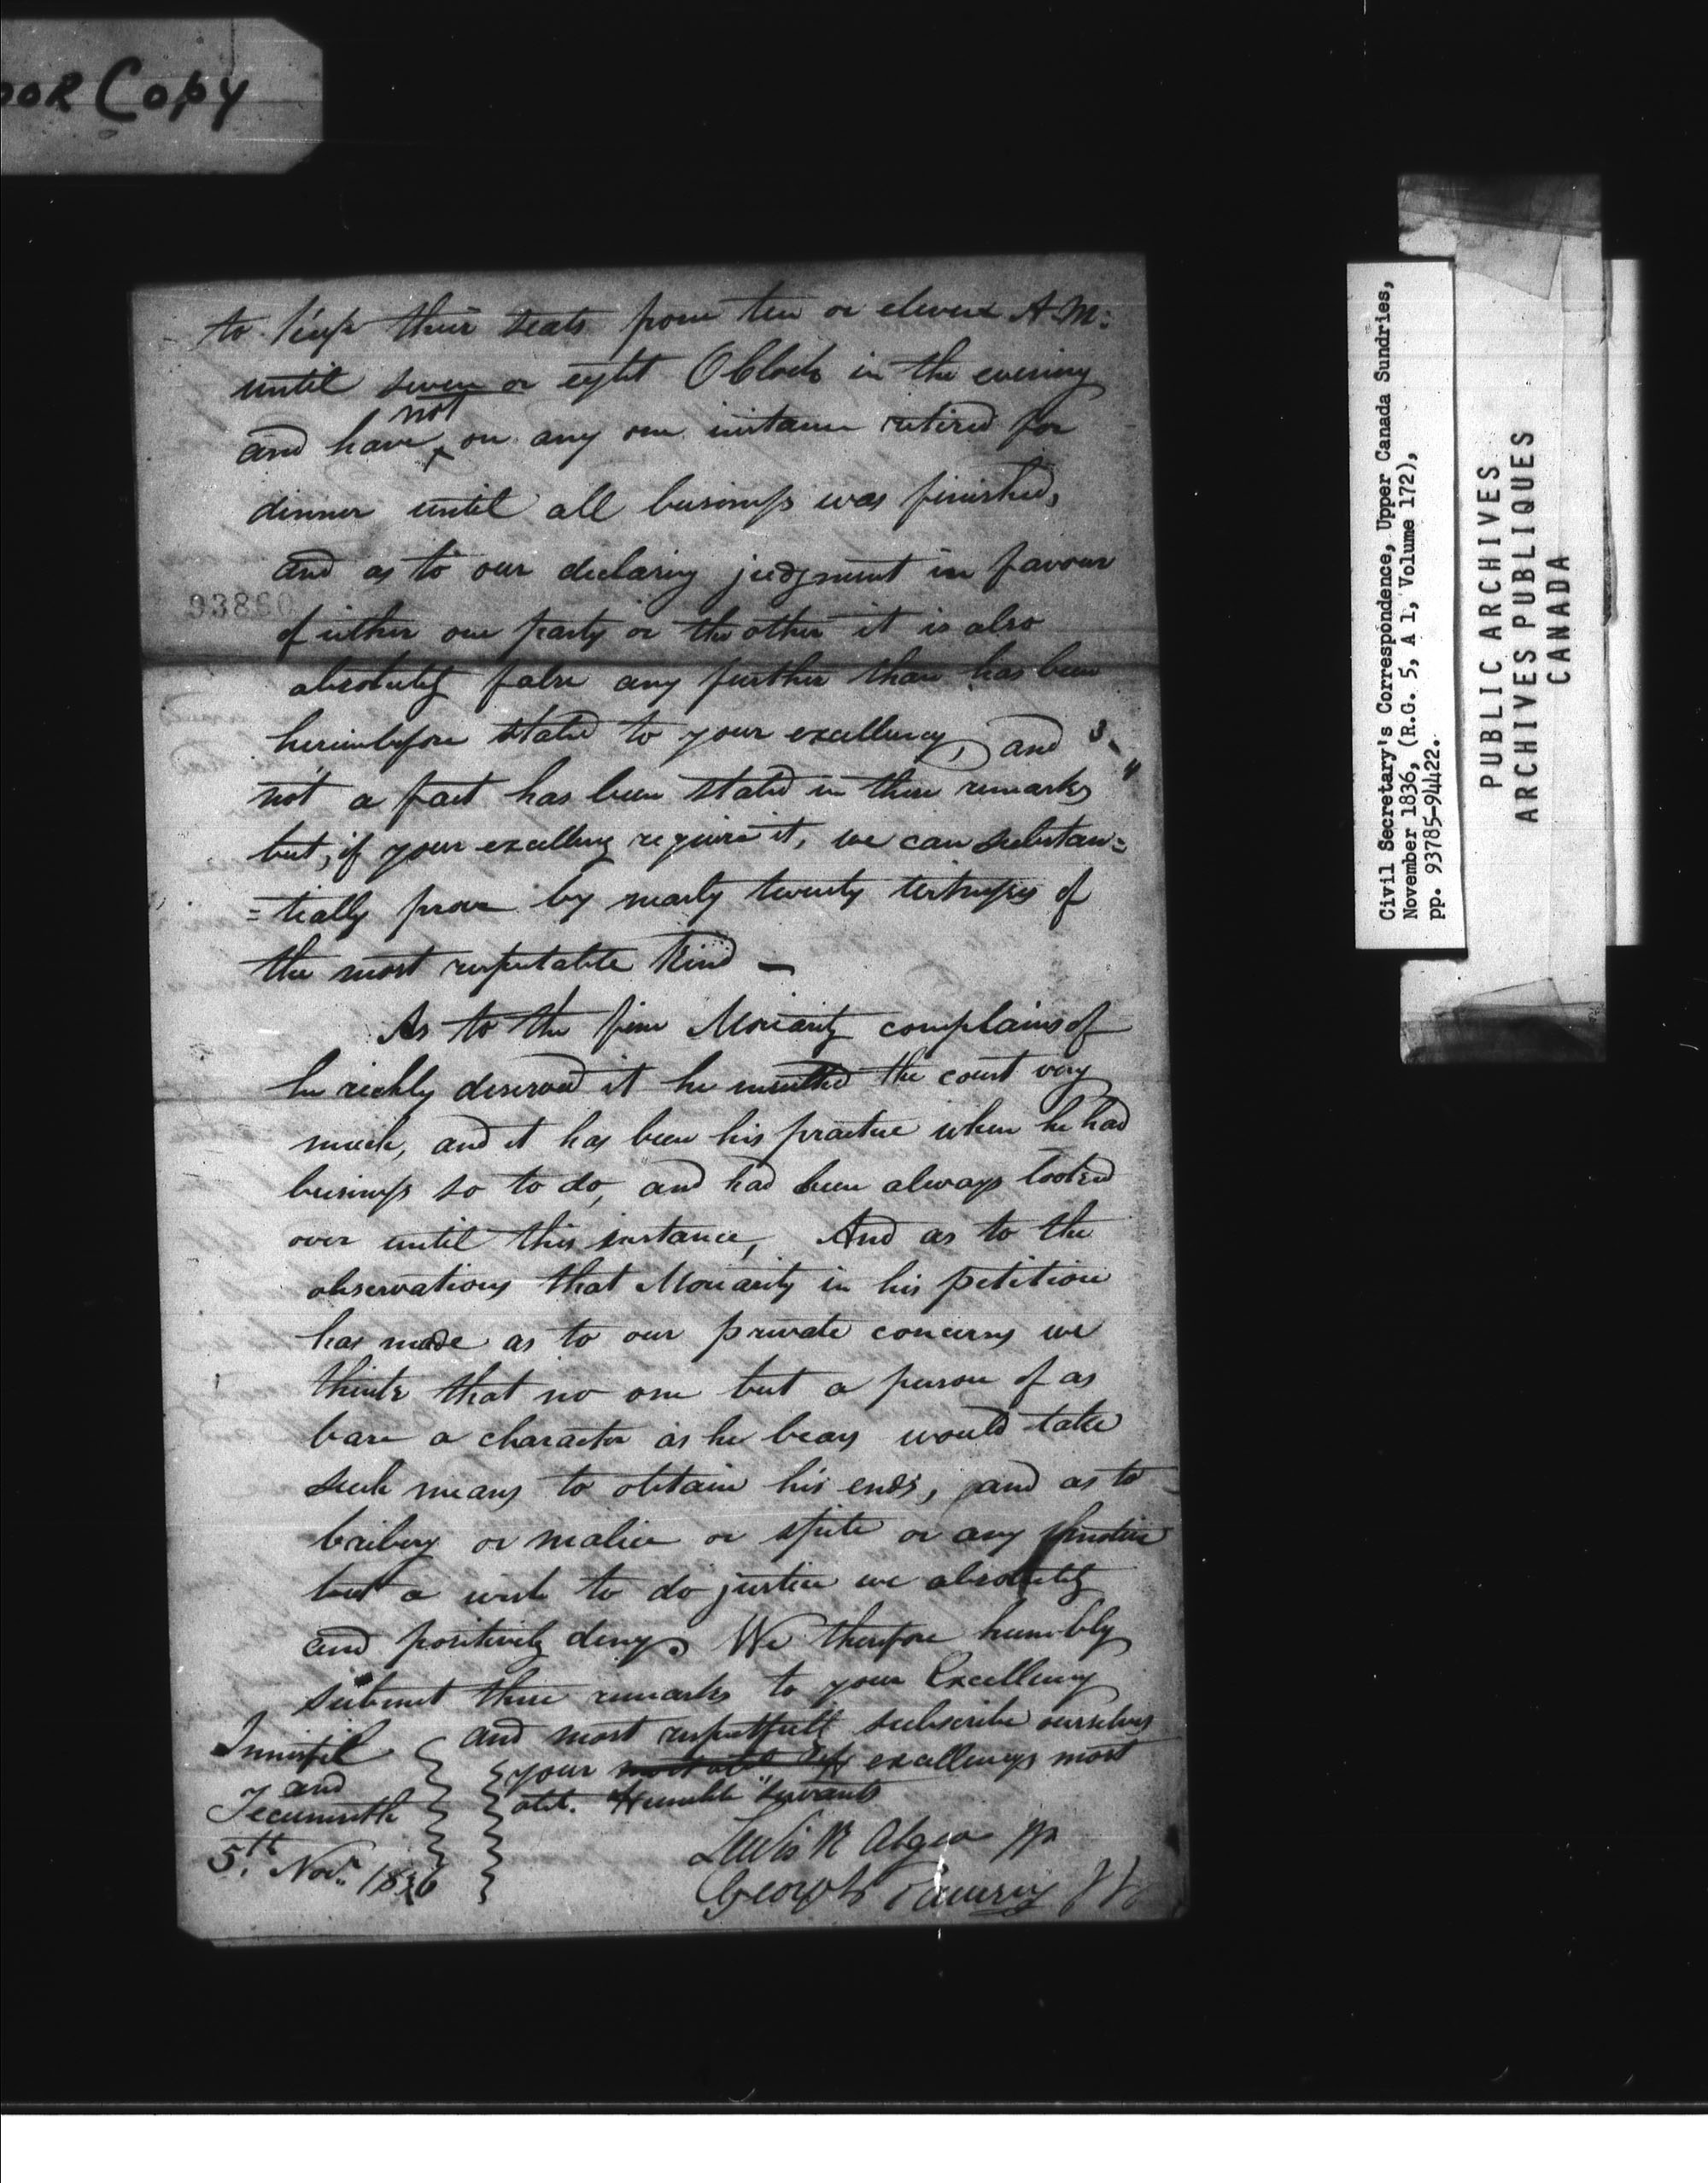 OOR Copy
to keep their seats from ten or eleven A.M:
until seven or eight O Clock in the evening
not
and have on any one instance retired for
dinner until all business was finished,
and as to our declaring judgment in favour
93880
of either one party or the other it is also
absolutely false any further than has been
hereinbefore stated to your excellency, and
not a fact has been stated in these remarks
but, if your excellency require it, we can substan=
=tially prove by nearly twenty witnesses of
the most respectable kind —
As to the fine Moriarity complains of
he richly deserved it he insulted the court very
much, and it has been his practice when he had
business so to do, and had been always looked
over until this instance, And as to the
observations that Moriarity in his petition
has made as to our private concerns we
think that no one but a person of as
bare a character as he bears would take
such means to obtain his ends, and as to
bribery or malice or spite or any
but a wish to do justice we absolutely
and positively deny. We therefore humbly
submit these remarks to your Excellency
and most respectfully subscribe ourselves
your excellencys most
obt. Humble Servants
Innisfil
and
Tecumseth
5th Novr. 1836
Lewis R Algeo JP
George JP
Civil Secretary's Correspondence, Upper Canada Sundries,
November 1836, (R.G. 5, A 1, Volume 172),
pp. 93785-94422.
PUBLIC ARCHIVES
ARCHIVES PUBLIQUES
CANADA